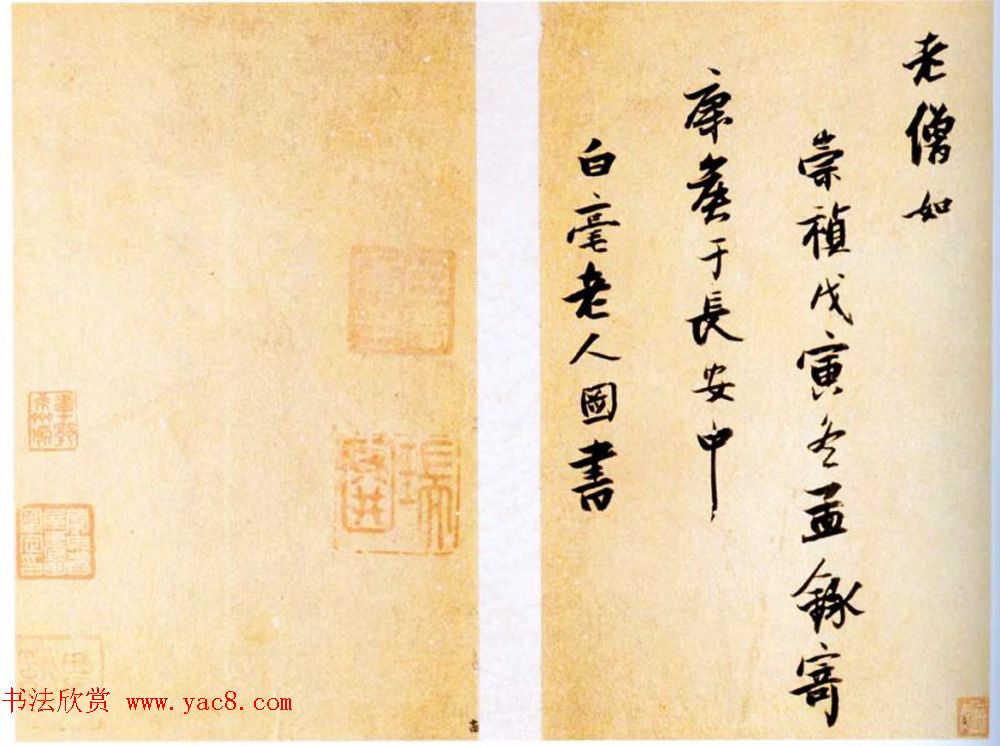 老僧如
崇禎戊寅冬孟錄寄
康侯于長安中
白毫老人圖書
书法欣赏 www.yac8.com